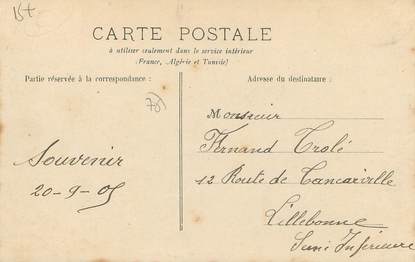 B+
CARTE POSTALE
à utiliser seulement dans le service intérieur
(France, Algérie et Tunisie)
Partie réservée à la correspondance :
Adresse du destinataire :
Monsieur
Fernand Trolé
12 Route de Tancarville
Lillebonne
Seine Inférieure
Souvenir
20-9-05